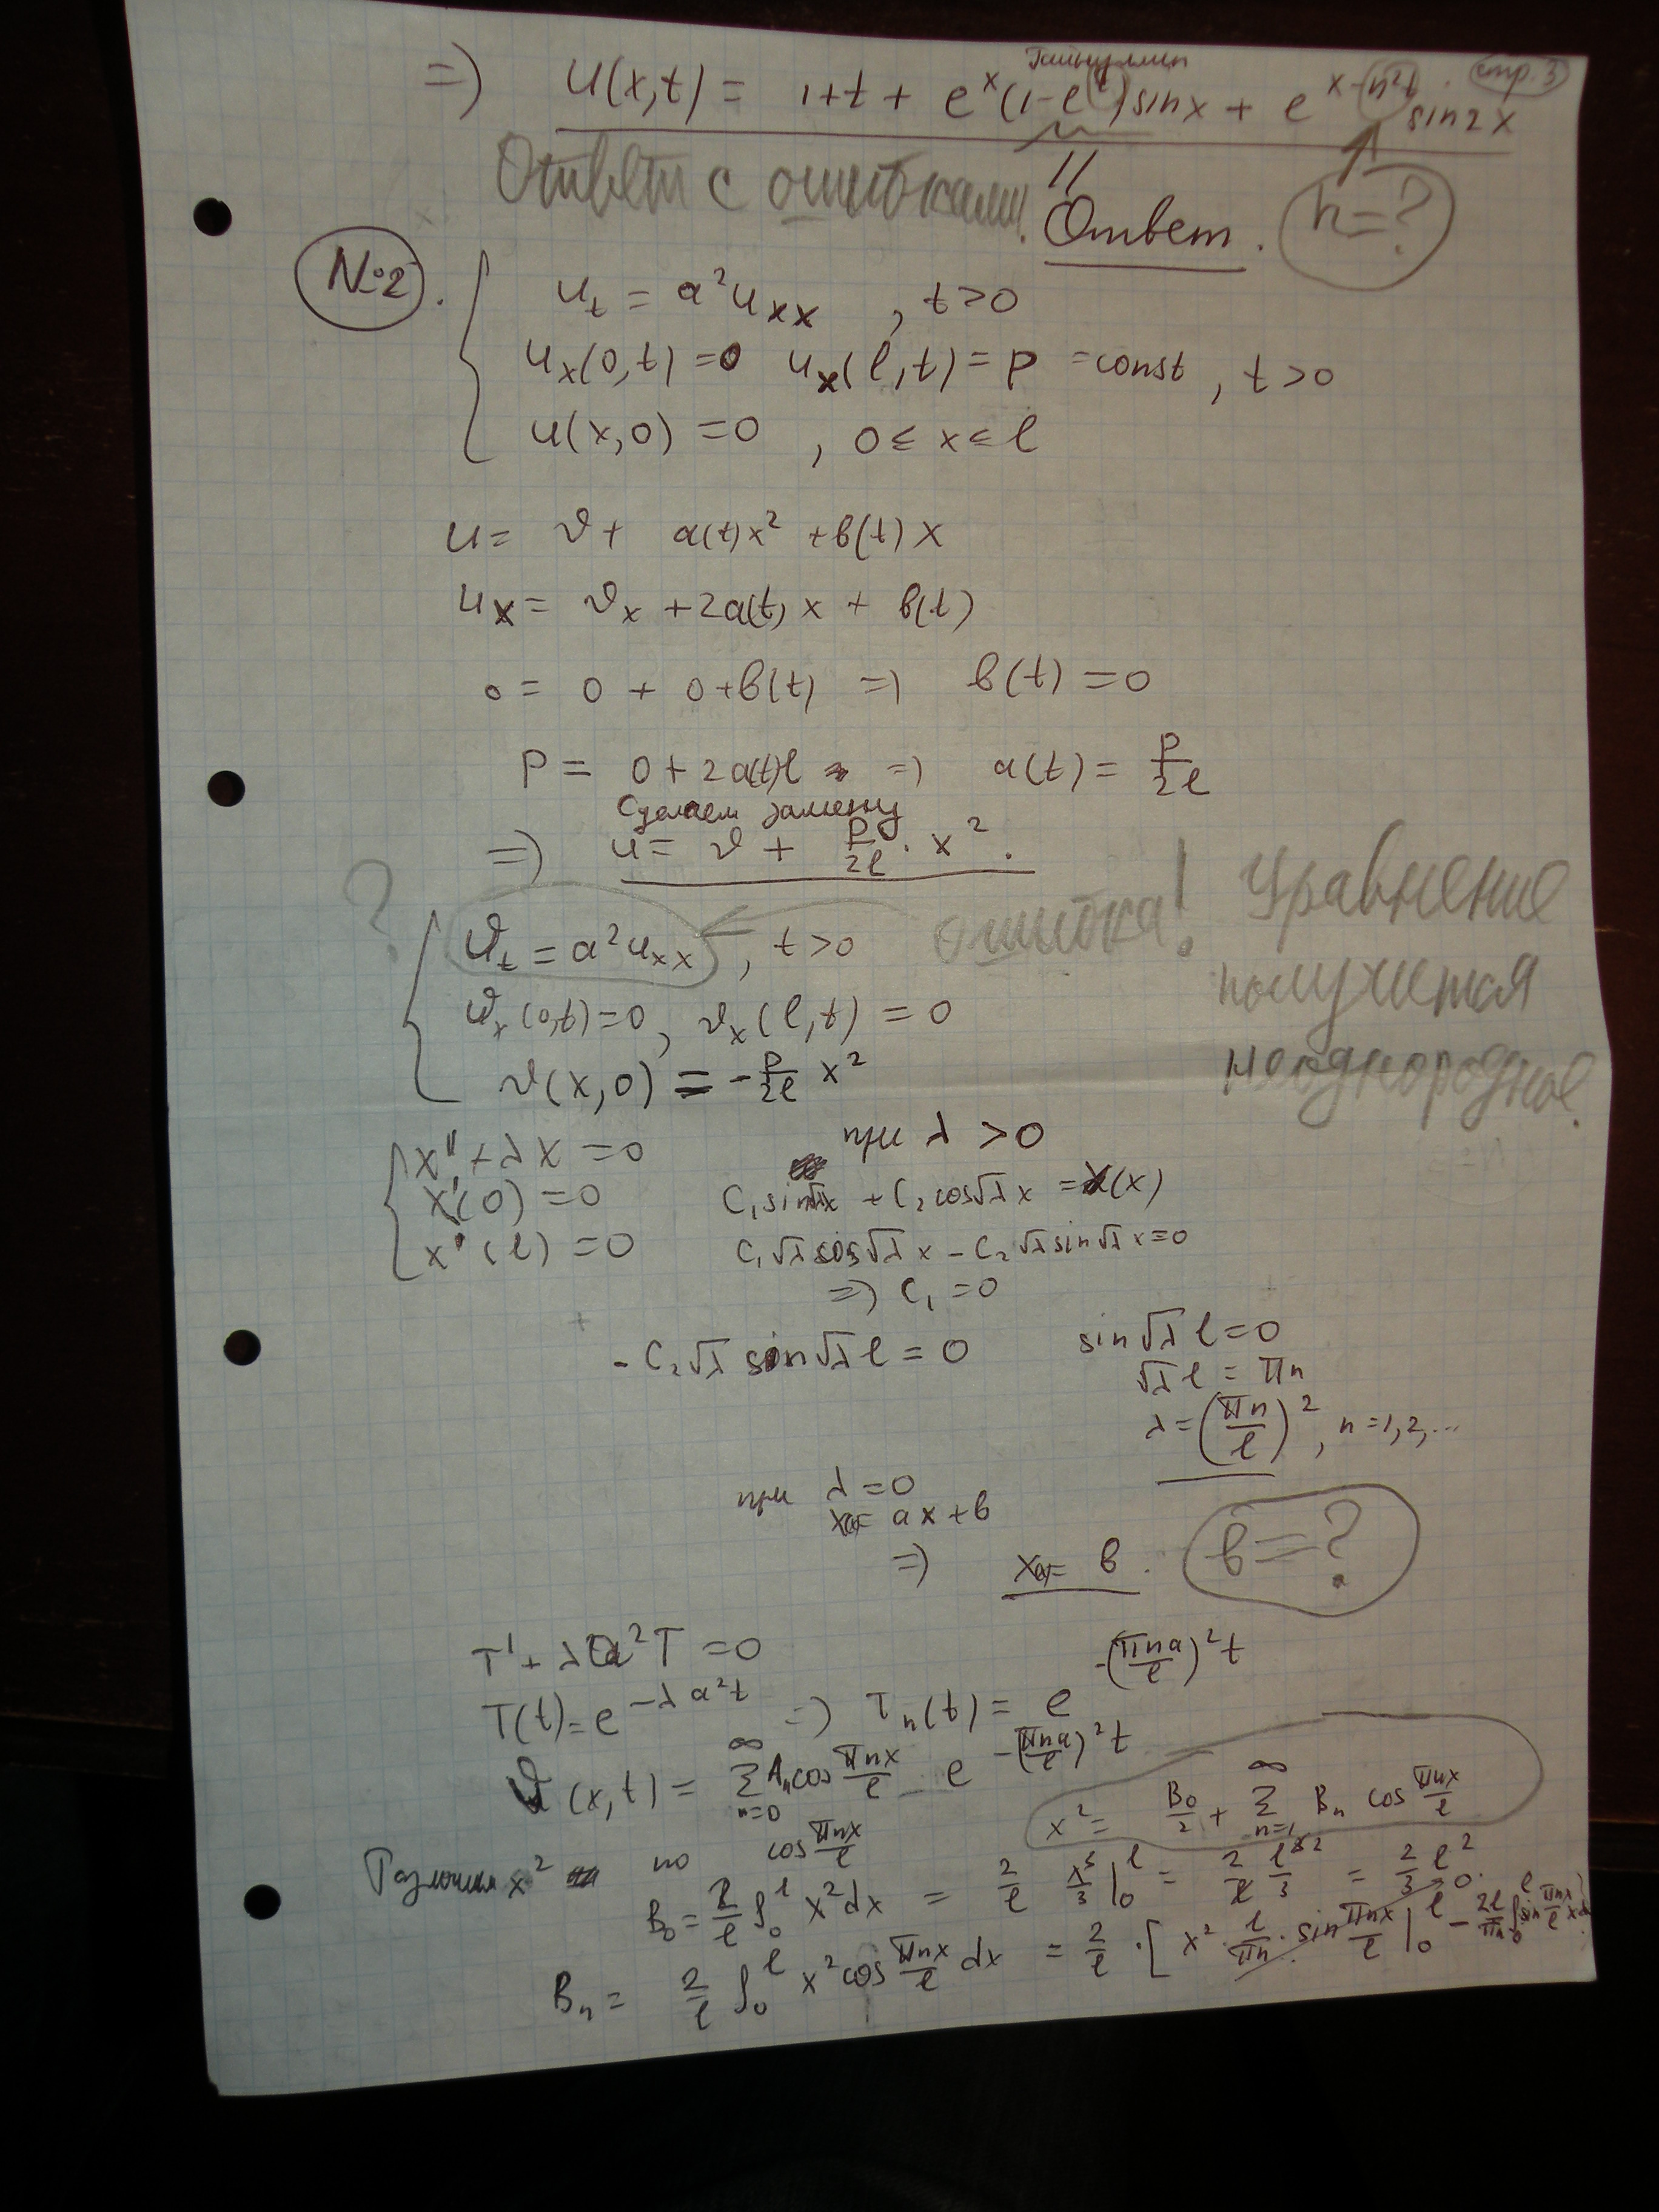 Гайнуллин
стр. 3
=> u(x,t) = 1+t + e^x(1-e^t) sin x + e^{x-n²t} sin 2x
Ответ с ошибками! || Ответ. n=?
№2. u_t = a² u_xx , t>0
u_x(0,t) = 0 u_x(l,t) = p = const , t>0
u(x,0) = 0 , 0 ≤ x ≤ l
u = v + a(t)x² + b(t)x
u_x = v_x + 2a(t)x + b(t)
0 = 0 + 0 + b(t) => b(t) = 0
p = 0 + 2a(t)l => a(t) = p/2l
Сделаем замену
=> u = v + p/2l · x².
? v_t = a² u_xx , t>0 ошибка! Уравнение получится неоднородное.
v_x(0,t) = 0, v_x(l,t) = 0
v(x,0) = - p/2l x²
X'' + λX = 0 при λ > 0
X'(0) = 0 C₁ sin√λx + C₂ cos√λ x = X(x)
X'(l) = 0 C₁√λ cos√λ x - C₂√λ sin√λ x = 0
=> C₁ = 0
- C₂√λ sin√λ l = 0 sin√λ l = 0
√λ l = πn
λ = (πn/l)², n = 1,2,...
при λ = 0
X(x) = ax + b
=> X(x) = b. b = ?
T' + λa²T = 0
T(t) = e^{-λa²t} => T_n(t) = e^{-(πna/l)²t}
v(x,t) = ∑_{n=0}^∞ A_n cos πnx/l e^{-(πna/l)²t}
x² = B₀/2 + ∑_{n=1}^∞ B_n cos πnx/l
Разложим x² по cos πnx/l
B₀ = 2/l ∫₀^l x² dx = 2/l x³/3 |₀^l = 2/l l³/3 = 2/3 l²
B_n = 2/l ∫₀^l x² cos πnx/l dx = 2/l · [ x² · l/πn · sin πnx/l |₀^l →0 - 2l/πn ∫₀^l sin πnx/l x dx